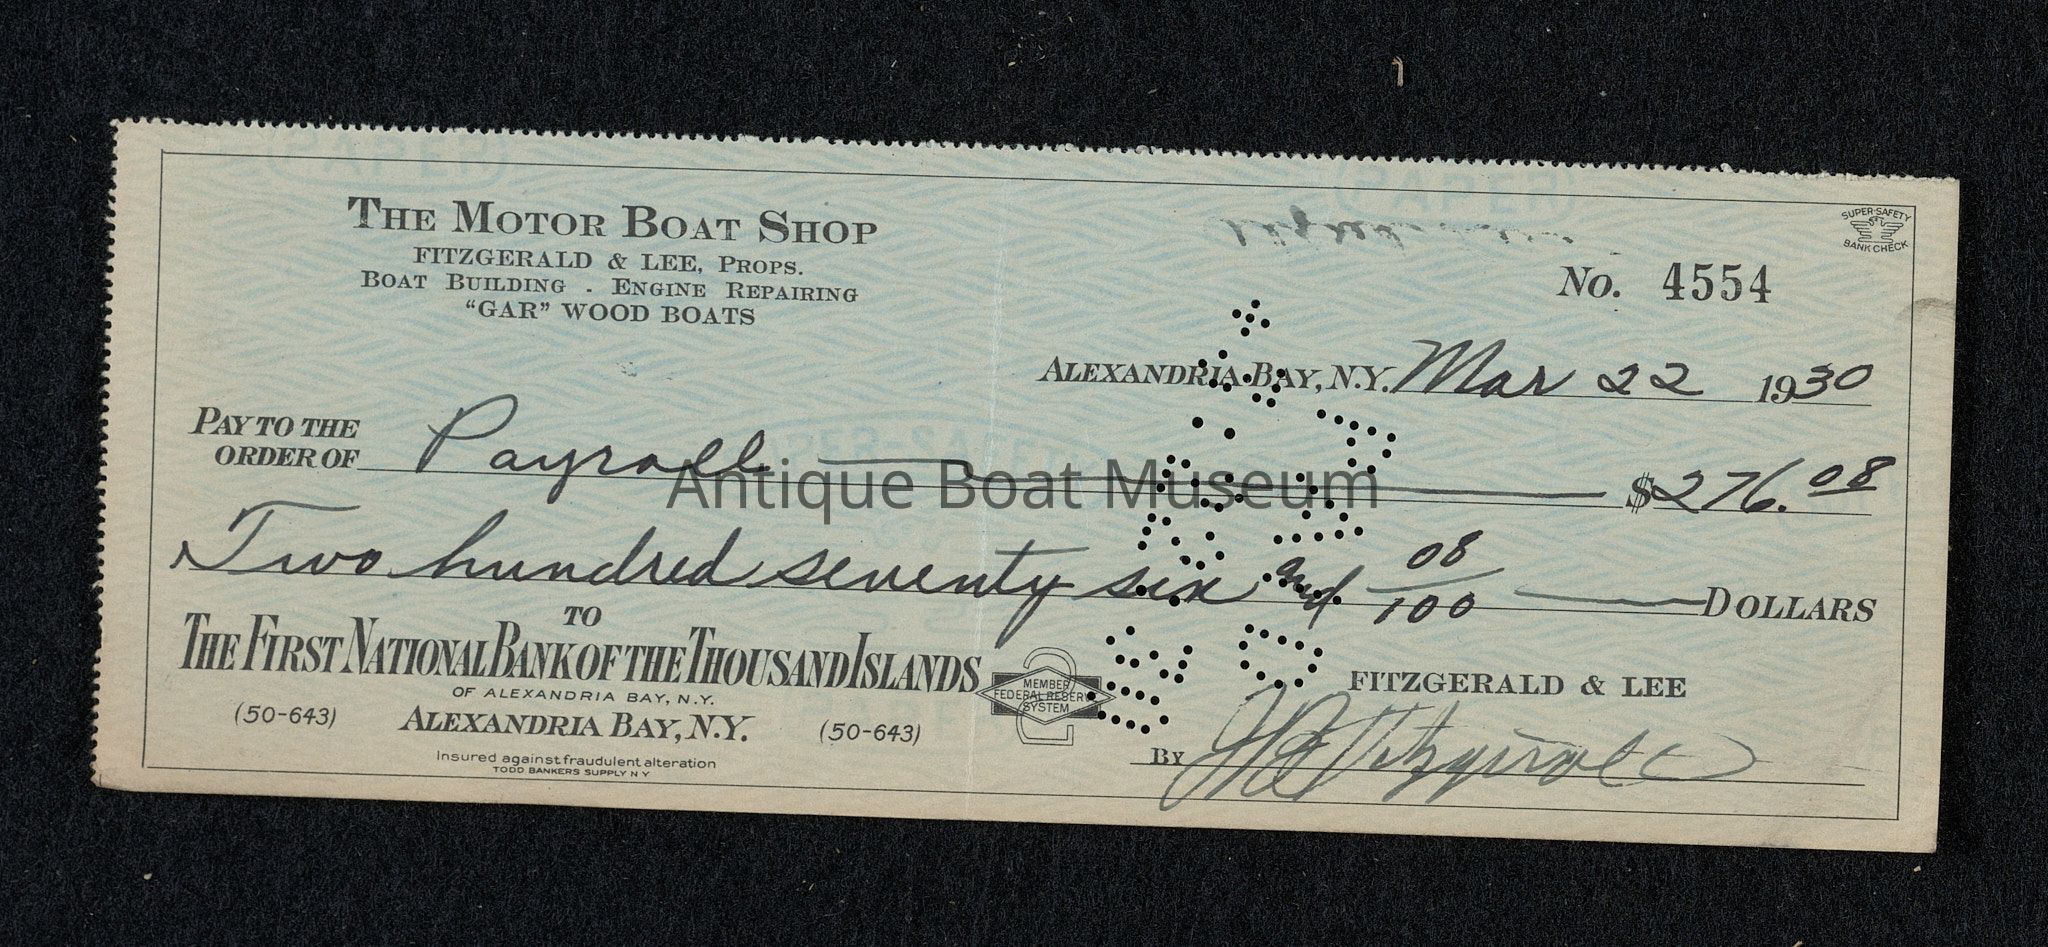 THE MOTOR BOAT SHOP
FITZGERALD & LEE, PROPS.
BOAT BUILDING - ENGINE REPAIRING
"GAR" WOOD BOATS
SUPER-SAFETY
BANK CHECK
No. 4554
ALEXANDRIA BAY, N.Y. Mar 22 1930
PAY TO THE
ORDER OF Payroll $276.08
Antique Boat Museum
Two hundred seventy six and 08/100 DOLLARS
TO
THE FIRST NATIONAL BANK OF THE THOUSAND ISLANDS
OF ALEXANDRIA BAY, N.Y.
(50-643) ALEXANDRIA BAY, N.Y. (50-643)
Insured against fraudulent alteration
TODD BANKERS SUPPLY N Y
MEMBER
FEDERAL RESERVE
SYSTEM
2
FITZGERALD & LEE
BY Fitzgerald
PAPER
PAPER